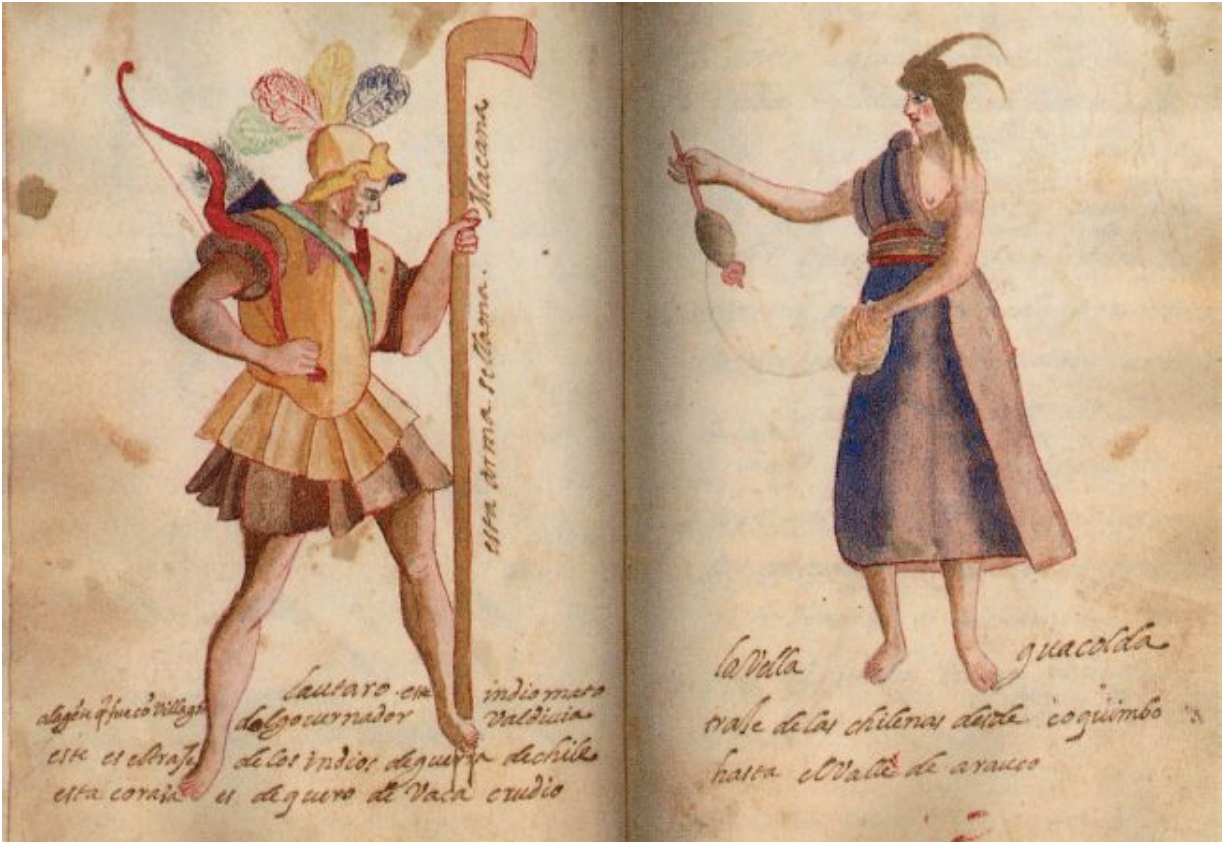 esta arma se llama. Macana
lautaro. este indio mato
al gouernador Valdiuia
este es el traje de los indios de guerra de chile
esta coraza es de quero de Vaca crudio
la Vella guacolda
traje de las chilenas desde coquimbo
hasta el Valle de arauco